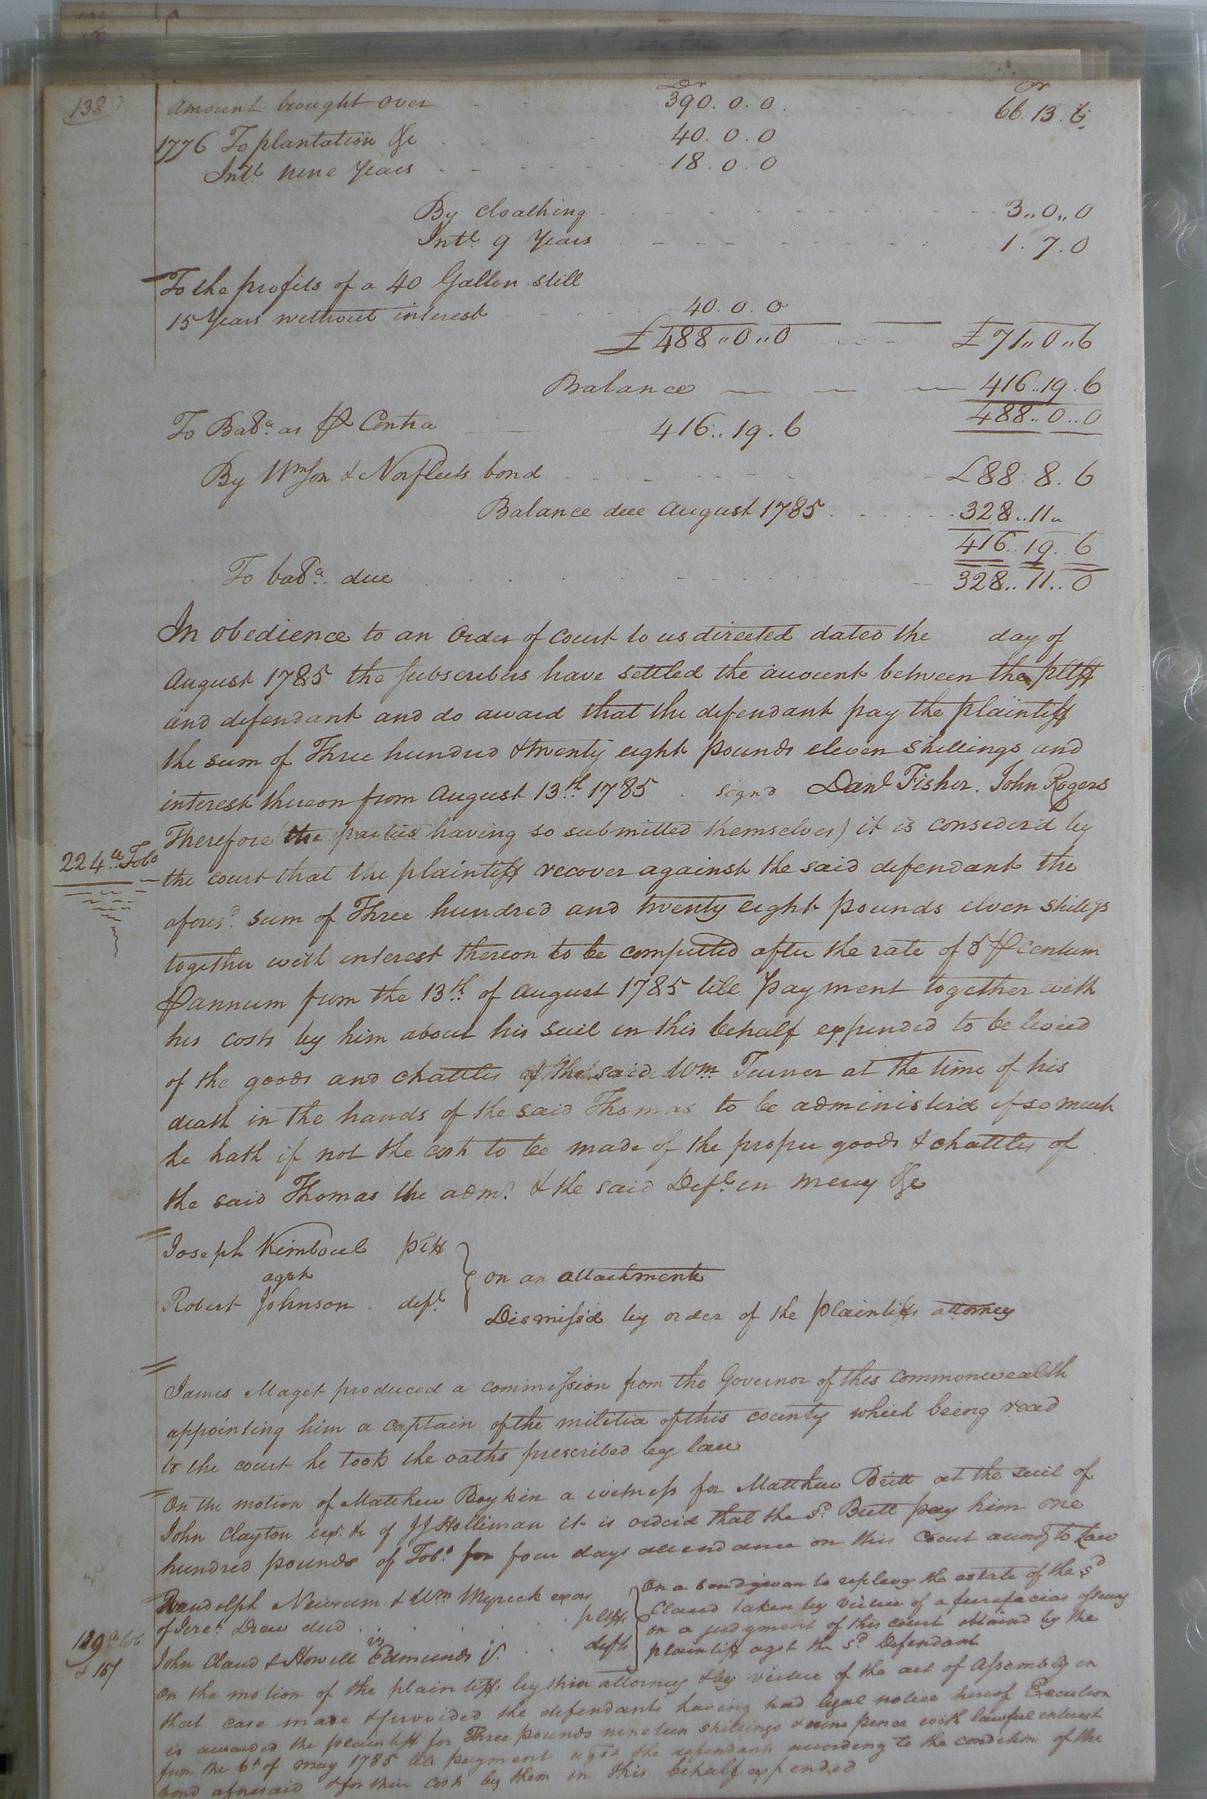 138
Dr Cr
Amount brought over 390.0.0 66.13.6
1776 To plantation &c 40.0.0
Intt. nine Years 18.0.0
By cloathing 3,,0,,0
Intt. 9 Years 1.7.0
To the profits of a 40 Gallon still
15 Years without interest 40.0.0
£488,,0,,0 £71,,0,,6
Balance 416..19.6
488..0..0
To Bala. as ⅌ Contra 416..19.6
By Wmson & Norfleets bond £88.8.6
Balance due August 1785 328..11,,
416..19.6
To bala. due 328..11..0
In obedience to an Order of Court to us directed dated the day of
August 1785 the subscribers have settled the account between the pltff
and defendant and do award that the defendant pay the plaintiff
the sum of Three hundred & twenty eight pounds eleven shillings and
interest thereon from August 13th. 1785. signd Danl Fisher. John Rogers
Therefore (the parties having so submitted themselves) it is considerd by
224 Tobo
the court that the plaintiff recover against the said defendant the
aforesd. sum of Three hundred and twenty eight pounds eleven shillgs
together with interest thereon to be computed after the rate of 5 ⅌ Centum
⅌ annum from the 13th. of August 1785 till payment together with
his costs by him about his suit in this behalf expended to be levied
of the goods and chattles of the said Wm. Turner at the time of his
death in the hands of the said Thomas to be administerd if so much
he hath if not the cost to be made of the proper goods & chattles of
the said Thomas the admr. & the said Deft. in mercy &c
Joseph Kimboul pltff
agst
on an attachment
Robert Johnson. deft.
Dismiss'd by order of the plaintiffs attorney
James Maget produced a commission from the Governor of this Commonwealth
appointing him a captain of the militia of this county which being read
to the court he took the oaths prescribed by law
On the motion of Matthew Boykin a witness for Matthew Britt at the suit of
John Clayton exr. &c of JJ Holliman it is orderd that the sd. Britt pay him one
hundred pounds of Tobo. for four days attendance on this Court accordg to Law
Randolph Newsum & Wm Myrick exors
of Jere: Drew decd pltffs
vs
John Claud & Howell Edmunds Jr. defts
On a bond given to replevy the estate of the sd
Claud taken by virtue of a fierefacias
on a judgment of this court obtained by the
plaintiff agst the sd. Defendant
129 tob
& 15/
On the motion of the plaintiffs by their attorney & by virtue of the act of Assembly in
that case made & provided the defendants having had legal notice hereof Execution
is awarded the plaintiff for Three pounds nineteen shillings & nine pence with lawful interest
from the 6th. of may 1785 till payment agst the defendants according to the condition of the
bond aforesaid & for their costs by them in this behalf expended